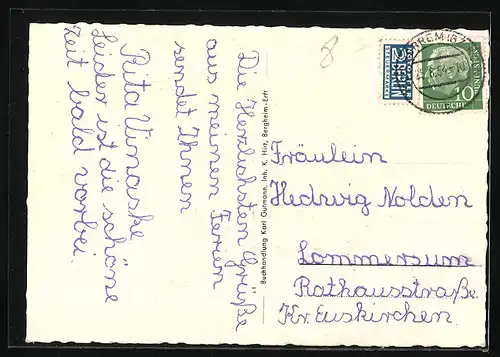 Die Herzlichsten Grüße
aus meinen Ferien
sendet Ihnen
Rita
Leider ist die schöne
Zeit bald vorbei.
Buchhandlung Karl Gutmann, Inh. K. Hirt, Bergheim-Erft
8
NOTOPFER
2 BERLIN
STEUERMARKE
10
DEUTSCHE
Fräulein
Hedwig Nolden
Lommersum
Rathausstraße.
Kr. Euskirchen